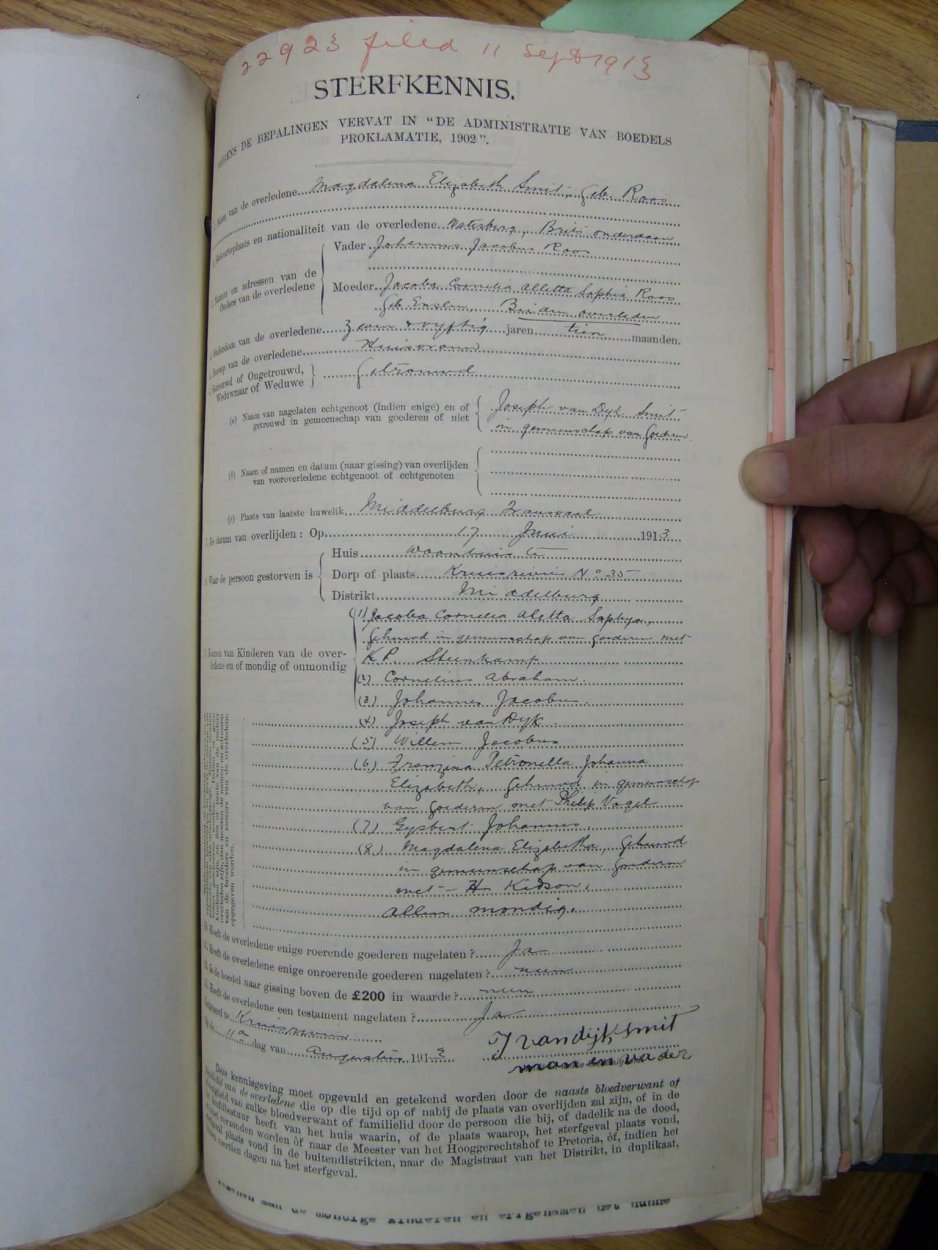 22923 filed 11 Sept 1913
STERFKENNIS.
DE BEPALINGEN VERVAT IN "DE ADMINISTRATIE VAN BOEDELS
PROKLAMATIE, 1902".
Naam van de overledene Magdalena Elizabeth Smit, Geb. Roos
Geboorteplaats en nationaliteit van de overledene Waterberg, Brits onderdaan
Namen en adressen van de Ouders van de overledene
Vader Johannes Jacobus Roos
Moeder Jacoba Cornelia Alletta Sophia Roos
Geb. Enslin, Beiden overleden
Ouderdom van de overledene Zeven & vyftig jaren tien maanden.
Beroep van de overledene Huisvrouw
Getrouwd of Ongetrouwd, Weduwnaar of Weduwe Getrouwd
(a) Naam van nagelaten echtgenoot (indien enige) en of
getrouwd in gemeenschap van goederen of niet
Joseph van Dyk Smit
in gemeenschap van Goederen
(b) Naam of namen en datum (naar gissing) van overlijden
van vooroverledene echtgenoot of echtgenoten
(c) Plaats van laatste huwelik Middelburg Transvaal
De datum van overlijden: Op 17 Juni 1913
Waar de persoon gestorven is
Huis Woonhuis te
Dorp of plaats Kruisrivier No 35
Distrikt Middelburg
Namen van Kinderen van de overledene en of mondig of onmondig
(1) Jacoba Cornelia Aletta Sophya,
Gehuwd in gemeenschap van goederen met
K P. Steenkamp
(2) Cornelius Abraham.
(3) Johannes Jacobus.
(4) Joseph van Dyk.
(5) Willem Jacobus
(6) Franzina Petronella Johanna
Elizabeth, Gehuwd in gemeenschap
van Goederen met Philip Vogel
(7) Gysbert Johannes
(8) Magdalena Elizabetha, Gehuwd
in gemeenschap van Goederen
met H Kidson.
Allen mondig.
Heeft de overledene enige roerende goederen nagelaten? Ja
Heeft de overledene enige onroerende goederen nagelaten? neen
Is de boedel naar gissing boven de £200 in waarde? neen
Heeft de overledene een testament nagelaten? Ja
Kruisrivier
11de dag van Augustus 1913
J van dijk smit
man en vader
Deze kennisgeving moet opgevuld en getekend worden door de naaste bloedverwant of
van de overledene die op die tijd op of nabij de plaats van overlijden zal zijn, of in de
van zulke bloedverwant of familielid door de persoon die bij, of dadelik na de dood,
heeft van het huis waarin, of de plaats waarop, het sterfgeval plaats vond,
verzonden worden òf naar de Meester van het Hooggerechtshof te Pretoria, òf, indien het
plaats vond in de buitendistrikten, naar de Magistraat van het Distrikt, in duplikaat,
dagen na het sterfgeval.